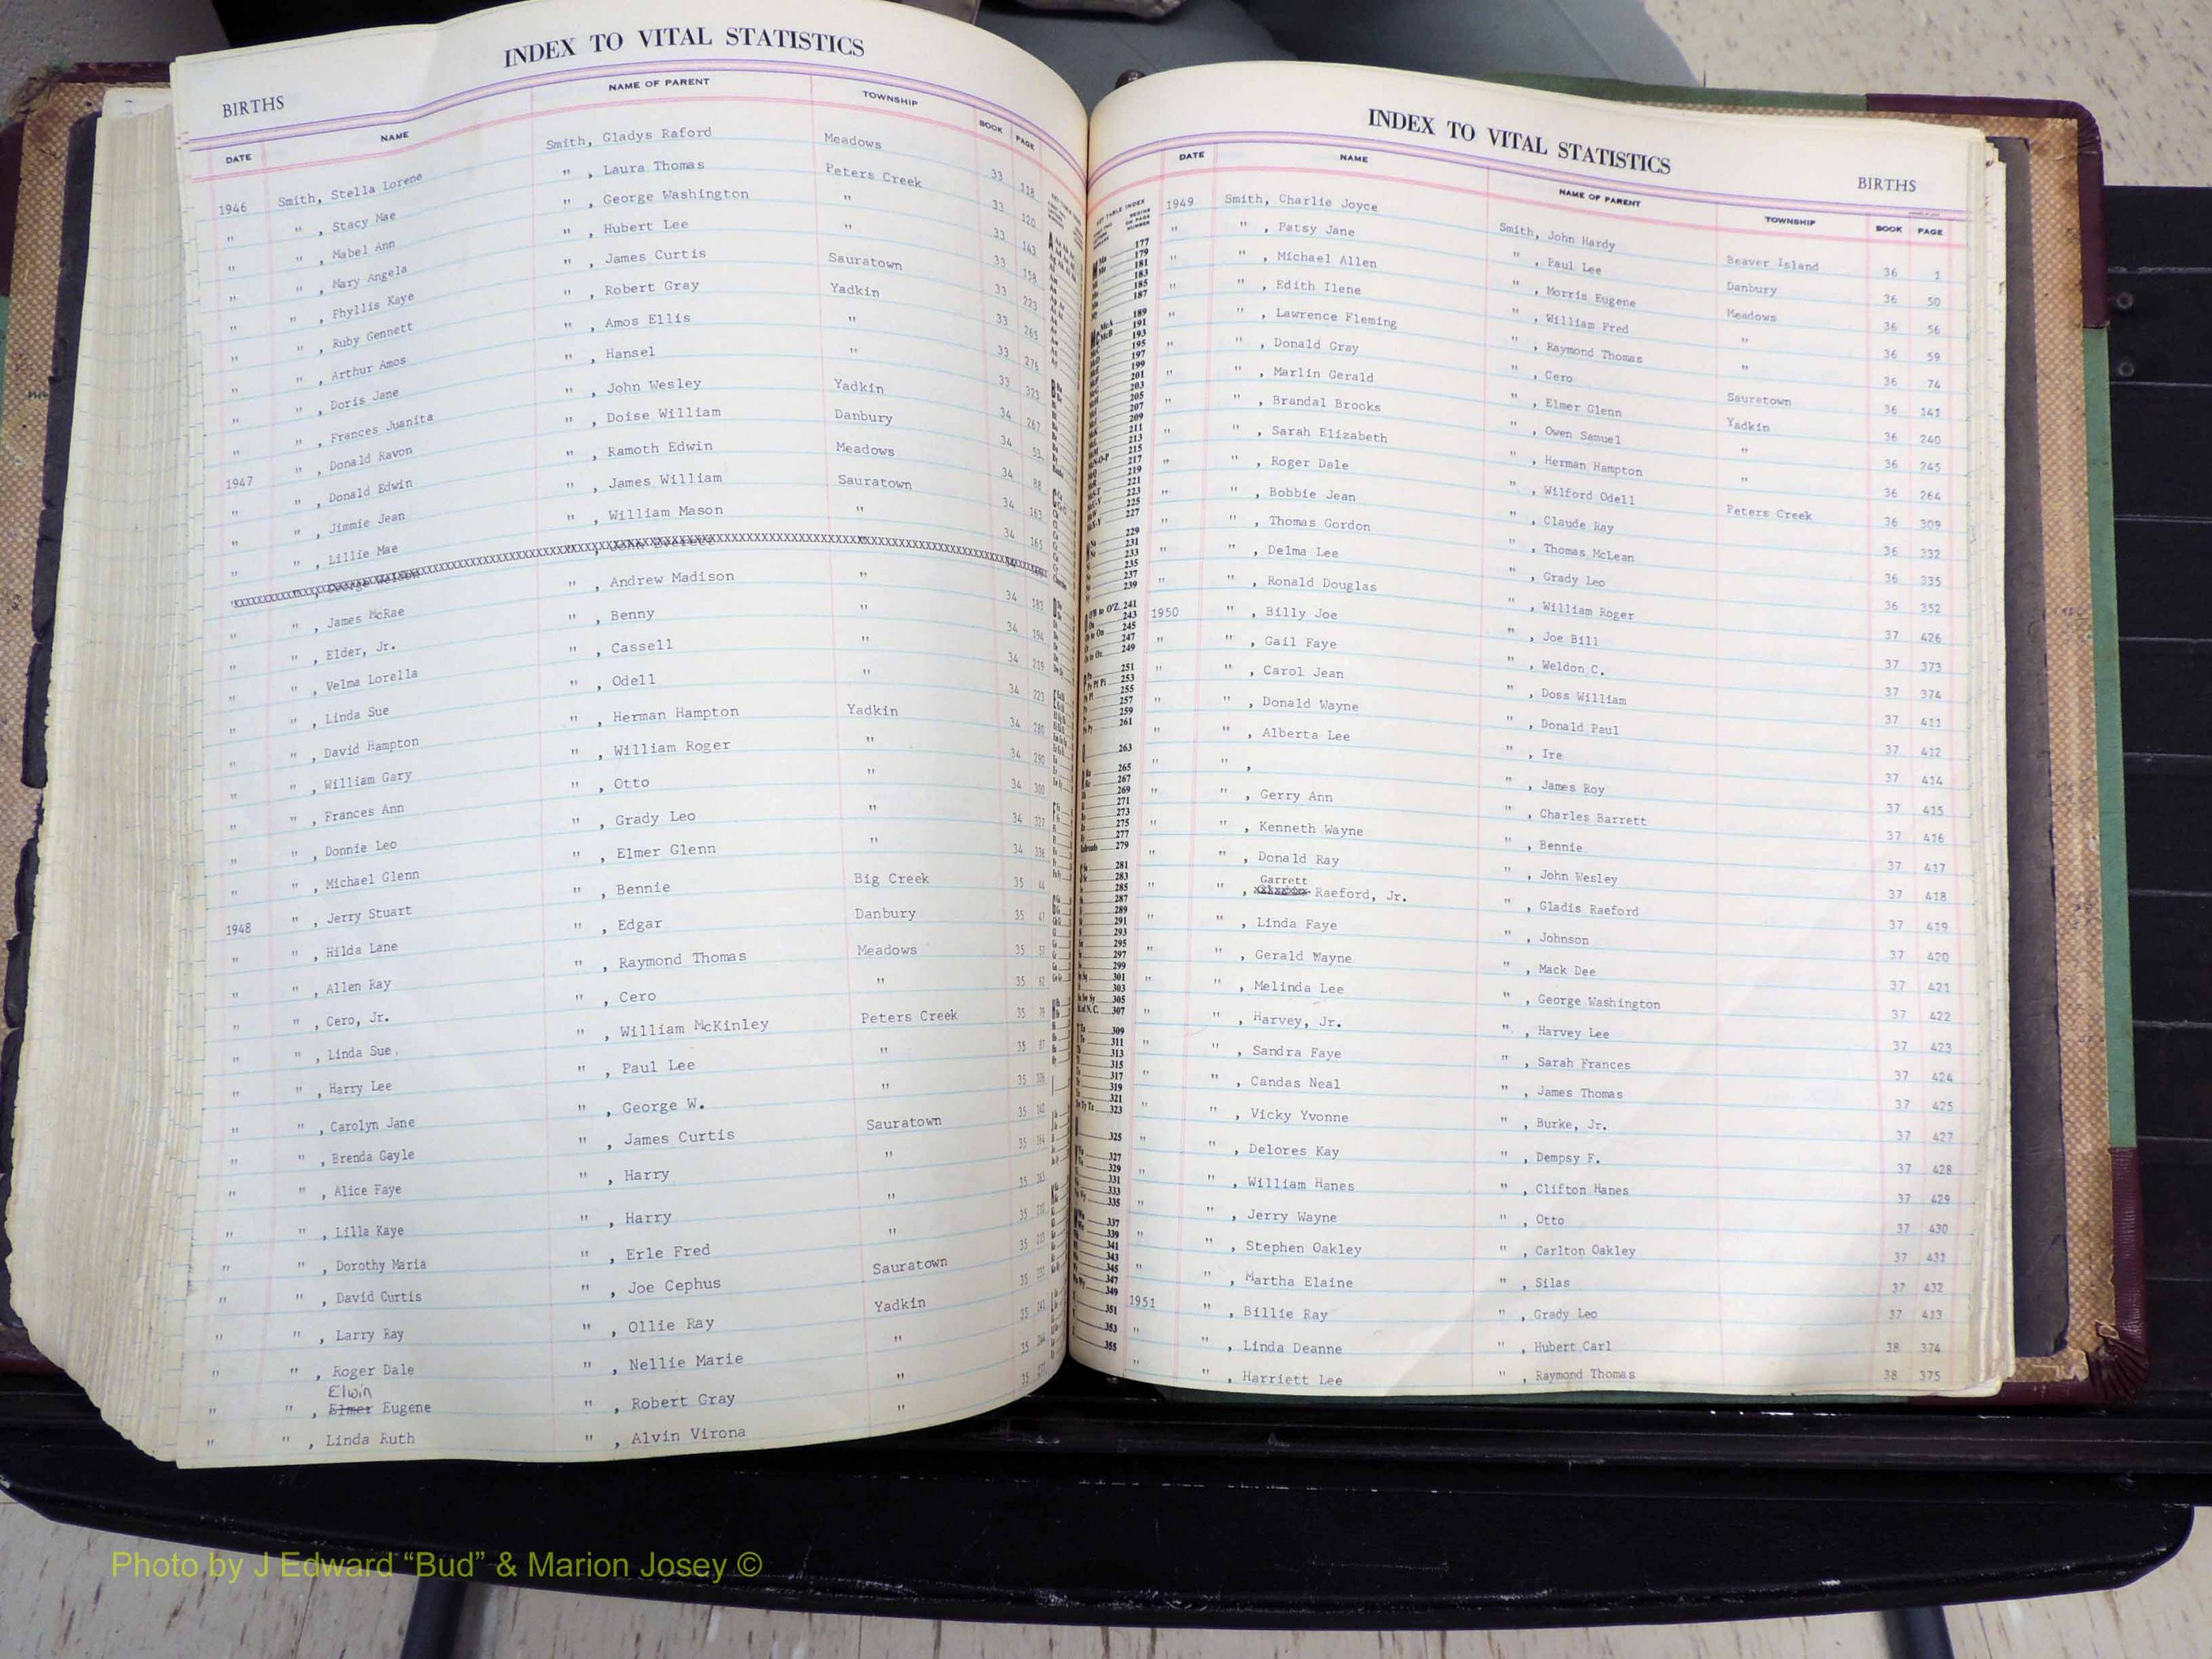 INDEX TO VITAL STATISTICS
BIRTHS
DATE NAME NAME OF PARENT TOWNSHIP BOOK PAGE
1946 Smith, Stella Lorene Smith, Gladys Raford Meadows 33 118
" " , Stacy Mae " , Laura Thomas Peters Creek 33 120
" " , Mabel Ann " , George Washington " 33 143
" " , Mary Angela " , Hubert Lee " 33 158
" " , Phyllis Kaye " , James Curtis Sauratown 33 223
" " , Ruby Gennett " , Robert Gray Yadkin 33 265
" " , Arthur Amos " , Amos Ellis " 33 276
" " , Doris Jane " , Hansel " 33 323
" " , Frances Juanita " , John Wesley Yadkin 34 267
1947 " , Donald Ravon " , Doise William Danbury 34 53
" " , Donald Edwin " , Ramoth Edwin Meadows 34 88
" " , Jimmie Jean " , James William Sauratown 34 163
" " , Lillie Mae " , William Mason " 34 165
" " , George Welson " , John Everett "
" " , James McRae " , Andrew Madison " 34 183
" " , Elder, Jr. " , Benny " 34 194
" " , Velma Lorella " , Cassell " 34 219
" " , Linda Sue " , Odell " 34 223
" " , David Hampton " , Herman Hampton Yadkin 34 280
" " , William Gary " , William Roger " 34 290
" " , Frances Ann " , Otto " 34 300
" " , Donnie Leo " , Grady Leo " 34 327
" " , Michael Glenn " , Elmer Glenn " 34 336
1948 " , Jerry Stuart " , Bennie Big Creek 35 44
" " , Hilda Lane " , Edgar Danbury 35 47
" " , Allen Ray " , Raymond Thomas Meadows 35 57
" " , Cero, Jr. " , Cero " 35 62
" " , Linda Sue " , William McKinley Peters Creek 35 79
" " , Harry Lee " , Paul Lee " 35 87
" " , Carolyn Jane " , George W. " 35
" " , Brenda Gayle " , James Curtis Sauratown 35
" " , Alice Faye " , Harry " 35
" " , Lilla Kaye " , Harry " 35
" " , Dorothy Maria " , Erle Fred " 35
" " , David Curtis " , Joe Cephus Sauratown 35
" " , Larry Ray " , Ollie Ray Yadkin 35
" " , Roger Dale " , Nellie Marie " 35
Elwin
" " , Elmer Eugene " , Robert Gray " 35
" " , Linda Ruth " , Alvin Virona "
INDEX TO VITAL STATISTICS
BIRTHS
DATE NAME NAME OF PARENT TOWNSHIP BOOK PAGE
1949 Smith, Charlie Joyce Smith, John Hardy Beaver Island 36 1
" " , Patsy Jane " , Paul Lee Danbury 36 50
" " , Michael Allen " , Morris Eugene Meadows 36 56
" " , Edith Ilene " , William Fred " 36 59
" " , Lawrence Fleming " , Raymond Thomas " 36 74
" " , Donald Gray " , Cero Sauratown 36 141
" " , Marlin Gerald " , Elmer Glenn Yadkin 36 240
" " , Brandal Brooks " , Owen Samuel " 36 245
" " , Sarah Elizabeth " , Herman Hampton " 36 264
" " , Roger Dale " , Wilford Odell Peters Creek 36 309
" " , Bobbie Jean " , Claude Ray 36 332
" " , Thomas Gordon " , Thomas McLean 36 335
" " , Delma Lee " , Grady Leo 36 352
" " , Ronald Douglas " , William Roger 37 426
1950 " , Billy Joe " , Joe Bill 37 373
" " , Gail Faye " , Weldon C. 37 374
" " , Carol Jean " , Doss William 37 411
" " , Donald Wayne " , Donald Paul 37 412
" " , Alberta Lee " , Ire 37 414
" " , " , James Roy 37 415
" " , Gerry Ann " , Charles Barrett 37 416
" " , Kenneth Wayne " , Bennie 37 417
" " , Donald Ray " , John Wesley 37 418
Garrett
" " , Raeford, Jr. " , Gladis Raeford 37 419
" " , Linda Faye " , Johnson 37 420
" " , Gerald Wayne " , Mack Dee 37 421
" " , Melinda Lee " , George Washington 37 422
" " , Harvey, Jr. " , Harvey Lee 37 423
" " , Sandra Faye " , Sarah Frances 37 424
" " , Candas Neal " , James Thomas 37 425
" " , Vicky Yvonne " , Burke, Jr. 37 427
" " , Delores Kay " , Dempsy F. 37 428
" " , William Hanes " , Clifton Hanes 37 429
" " , Jerry Wayne " , Otto 37 430
" " , Stephen Oakley " , Carlton Oakley 37 431
" " , Martha Elaine " , Silas 37 432
1951 " , Billie Ray " , Grady Leo 37 413
" " , Linda Deanne " , Hubert Carl 38 374
" " , Harriett Lee " , Raymond Thomas 38 375
Photo by J Edward “Bud” & Marion Josey ©